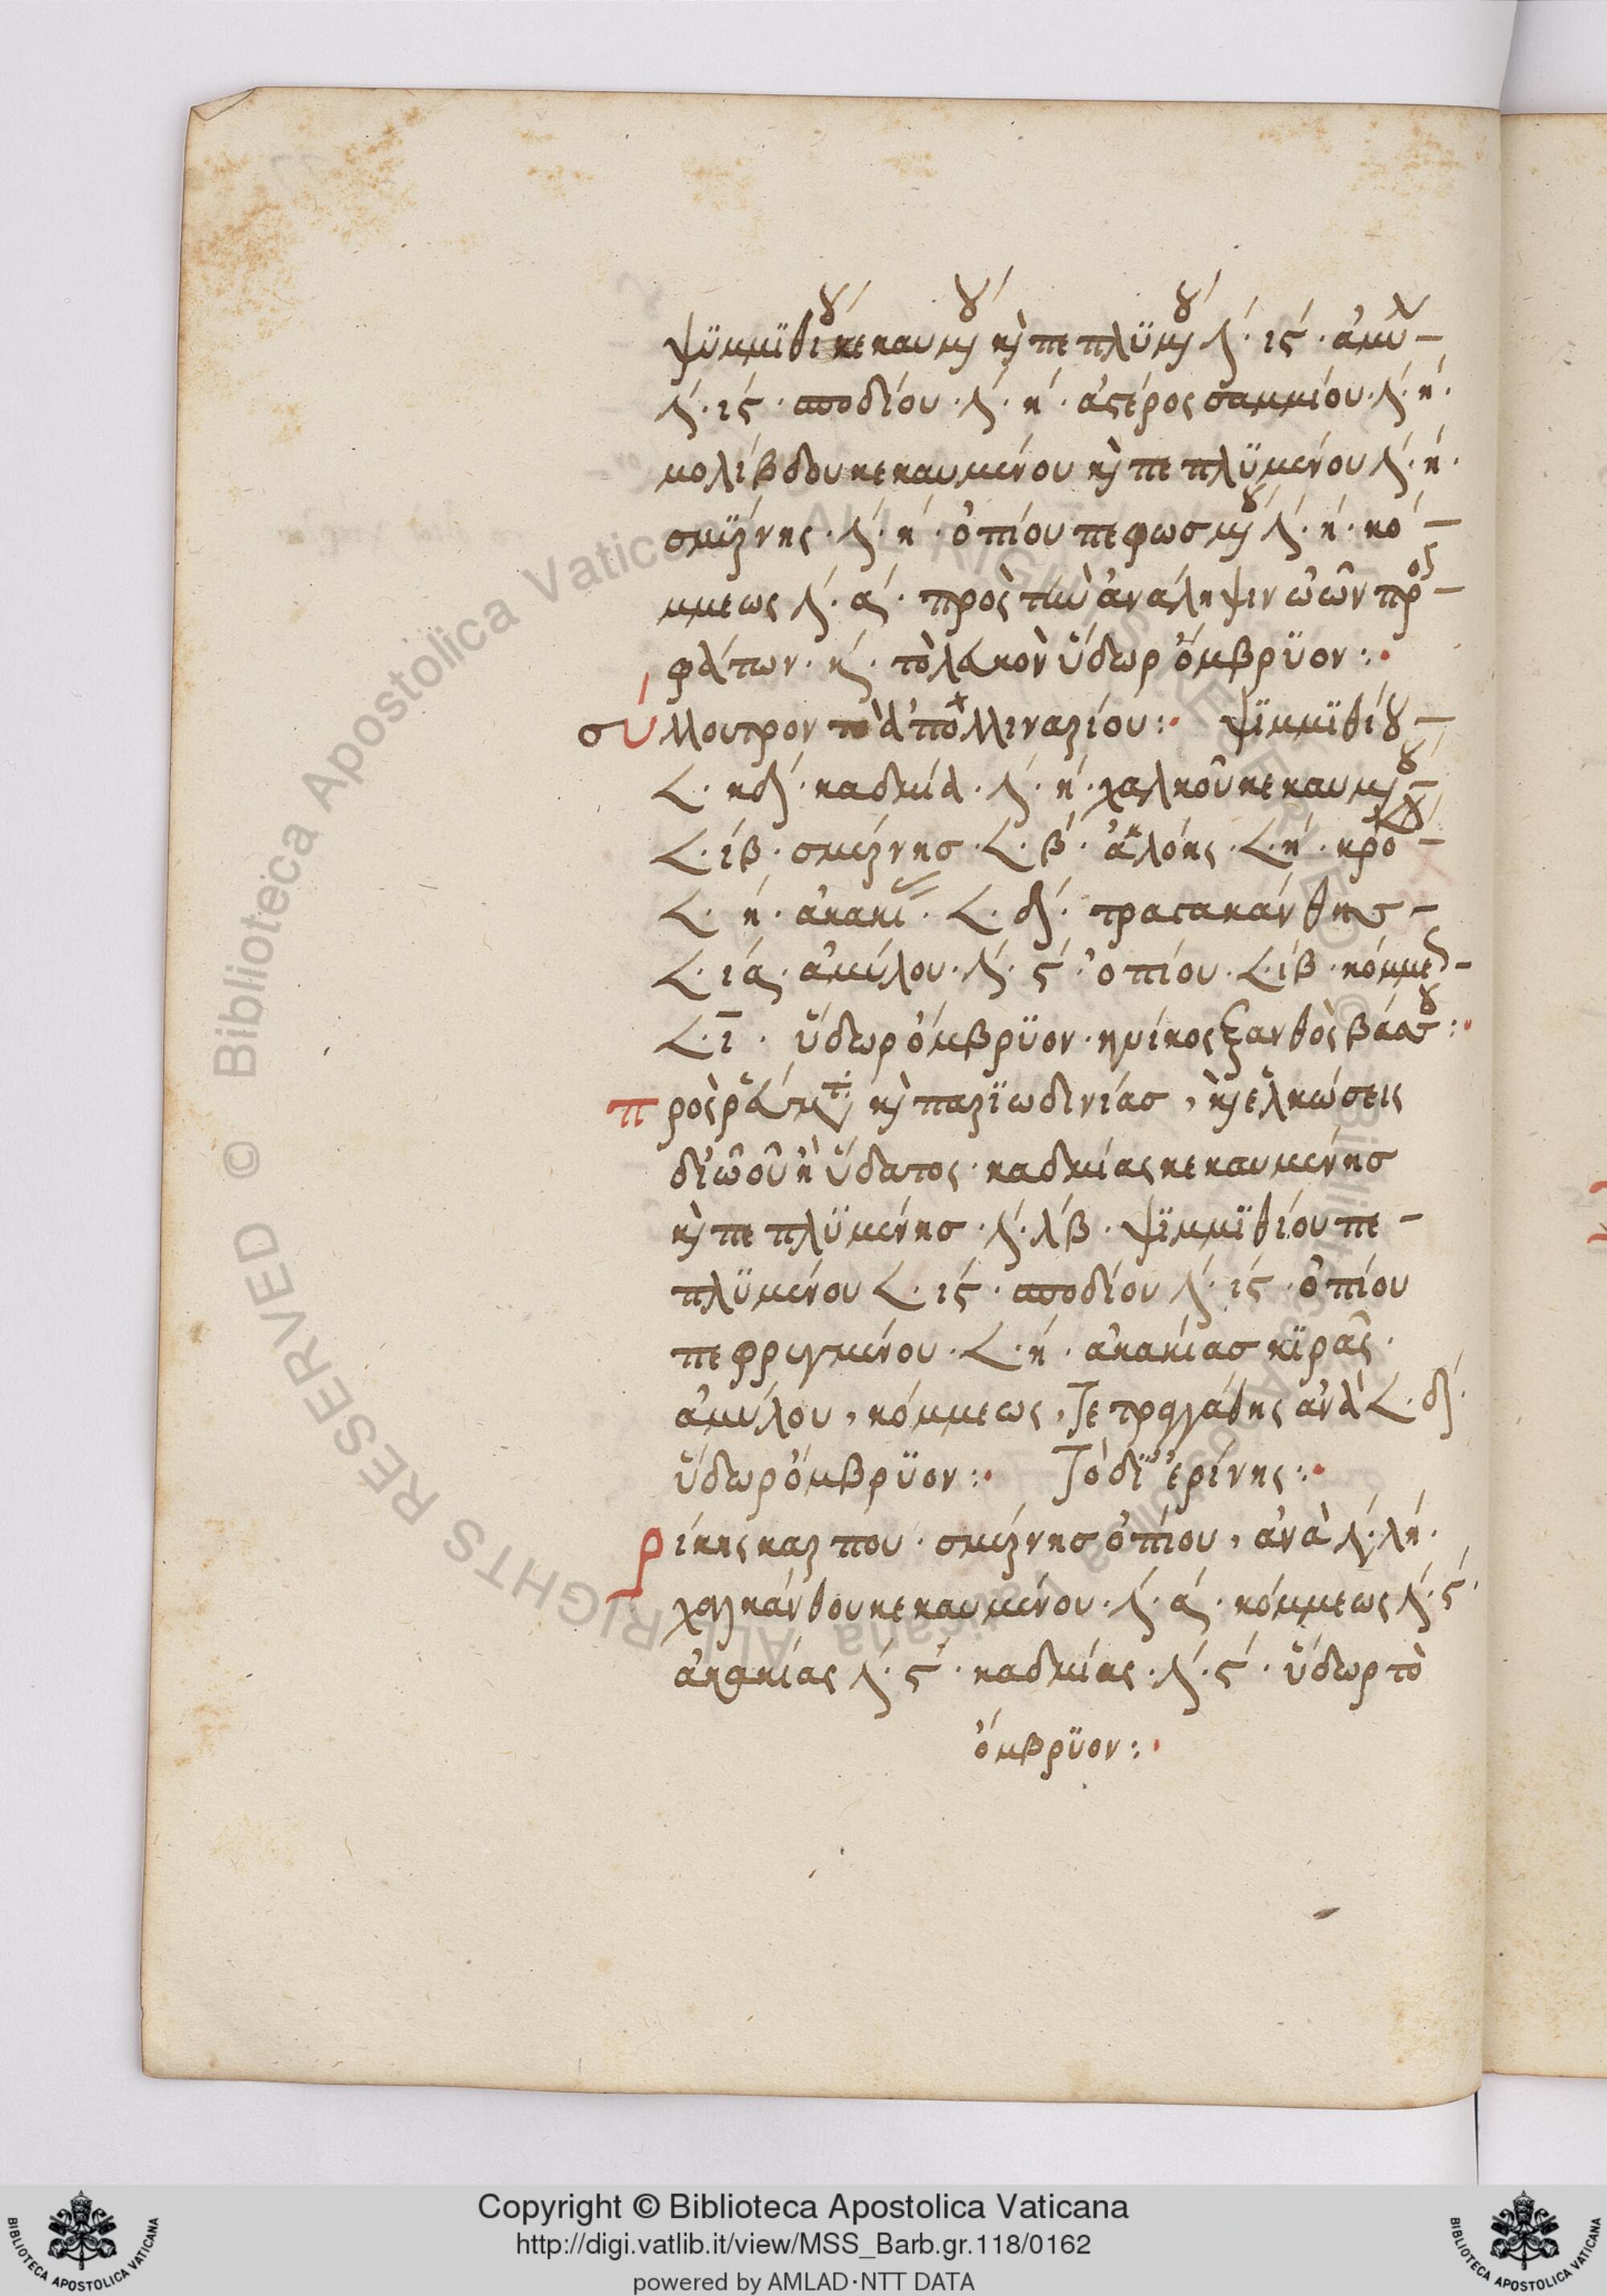 ψϋμμϊθίου κεκαυμ ου καὶ πεπλϋμ ου λ΄· ις΄· ἀμύλ
λ΄· ις΄· σποδίου· λ΄· η΄· ἀστέρος σαμμίου· λ΄· η΄·
μολίβδου κεκαυμένου καὶ πεπλϋμένου λ΄· η΄·
σμϊρνης· λ΄· η΄· ὀπίου πεφωσμ ου λ΄· η΄· κό
μμεως λ΄· α΄· πρὸς τὴν ἀνάληψιν ὠῶν προσ
φάτων· η΄· τὸ λακὸν ὕδωρ ὄμβρϋον:·
σύλλουτρον τὸ ἀπολλιναρίου:· ψϊμμϊθίου
𐅻· κδ΄· καδμία· λ΄· η΄· χαλκοῦ κεκαυμ ου
𐅻· ίβ· σμύρνησ· 𐅻· β΄· ἀλόης· 𐅻· η΄· κρό
𐅻· η΄· ἀκακί· 𐅻· δ΄· τραγακάνθησ
𐅻· ια΄· ἀμύλου· λ΄· ς΄· ὀπίου· 𐅻· ίβ· κόμμε
𐅻· ι· ὕδωρ ὄμβρϋον· ξανθὸς βάσσου:·
πρὸς καὶ παρϊωδινίασ, καὶ ἑλκώσεις
δι' ὠοῦ ἢ ὕδατος· καδμίας κεκαυμένησ
καὶ πεπλϋμένησ· λ΄· λβ· ψϊμμϊθίου πε
πλϋμένου 𐅻· ις΄· σποδίου λ΄· ις΄· ὀπίου
πεφρυγμένου· 𐅻· η΄· ἀκακίασ κϊρᾶς·
ἀμύλου, κόμμεως, τε τραγάθης ἀνὰ 𐅻· δ΄·
ὕδωρ ὄμβρϋον:· Τὸ δϊ' ἐρίνης:·
ρίκης καρπου· σμύρνησ ὀπίου, ἀνὰ λ΄· λη΄·
χαλκάνθου κεκαυμένου· λ΄· α΄· κόμμεως λ΄· ς΄·
ἀκακίας λ΄· ς΄· καδμίας· λ΄· ς΄· ὕδωρ τὸ
ὄμβρϋον:·
Copyright © Biblioteca Apostolica Vaticana
http://digi.vatlib.it/view/MSS_Barb.gr.118/0162
powered by AMLAD·NTT DATA
BIBLIOTECA APOSTOLICA VATICANA
BIBLIOTECA APOSTOLICA VATICANA
© Biblioteca Apostolica Vaticana ALL RIGHTS RESERVED © Biblioteca Apostolica Vaticana ALL RIGHTS RESERVED